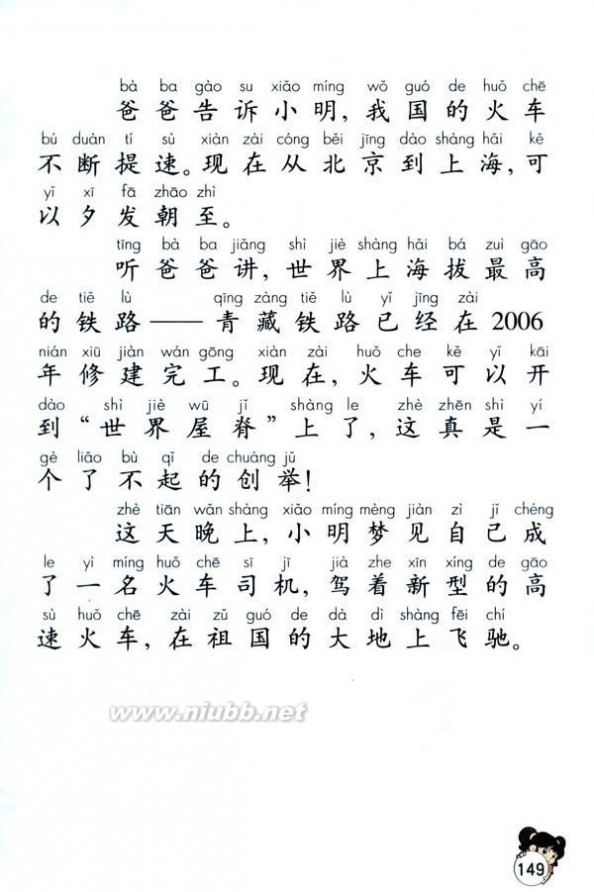 bà ba gào su xiǎo míng wǒ guó de huǒ chē
爸爸告诉小明，我国的火车
bú duàn tí sù xiàn zài cóng běi jīng dào shàng hǎi kě
不断提速。现在从北京到上海，可
yǐ xī fā zhāo zhì
以夕发朝至。
tīng bà ba jiǎng shì jiè shàng hǎi bá zuì gāo
听爸爸讲，世界上海拔最高
de tiě lù qīng zàng tiě lù yǐ jīng zài
的铁路——青藏铁路已经在2006
nián xiū jiàn wán gōng xiàn zài huǒ che kě yǐ kāi
年修建完工。现在，火车可以开
dào shì jiè wū jǐ shàng le zhè zhēn shì yí
到“世界屋脊”上了，这真是一
gè liǎo bù qǐ de chuàng jǔ
个了不起的创举！
zhè tiān wǎn shàng xiǎo míng mèng jiàn zì jǐ chéng
这天晚上，小明梦见自己成
le yì míng huǒ chē sī jī jià zhe xīn xíng de gāo
了一名火车司机，驾着新型的高
sù huǒ chē zài zǔ guó de dà dì shàng fēi chí
速火车，在祖国的大地上飞驰。
www.niubb.net
149